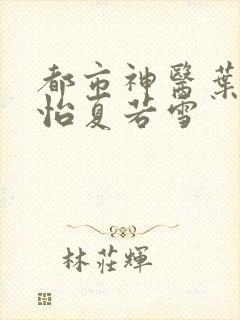 都市神醫葉
怡夏若雪
林莊輝